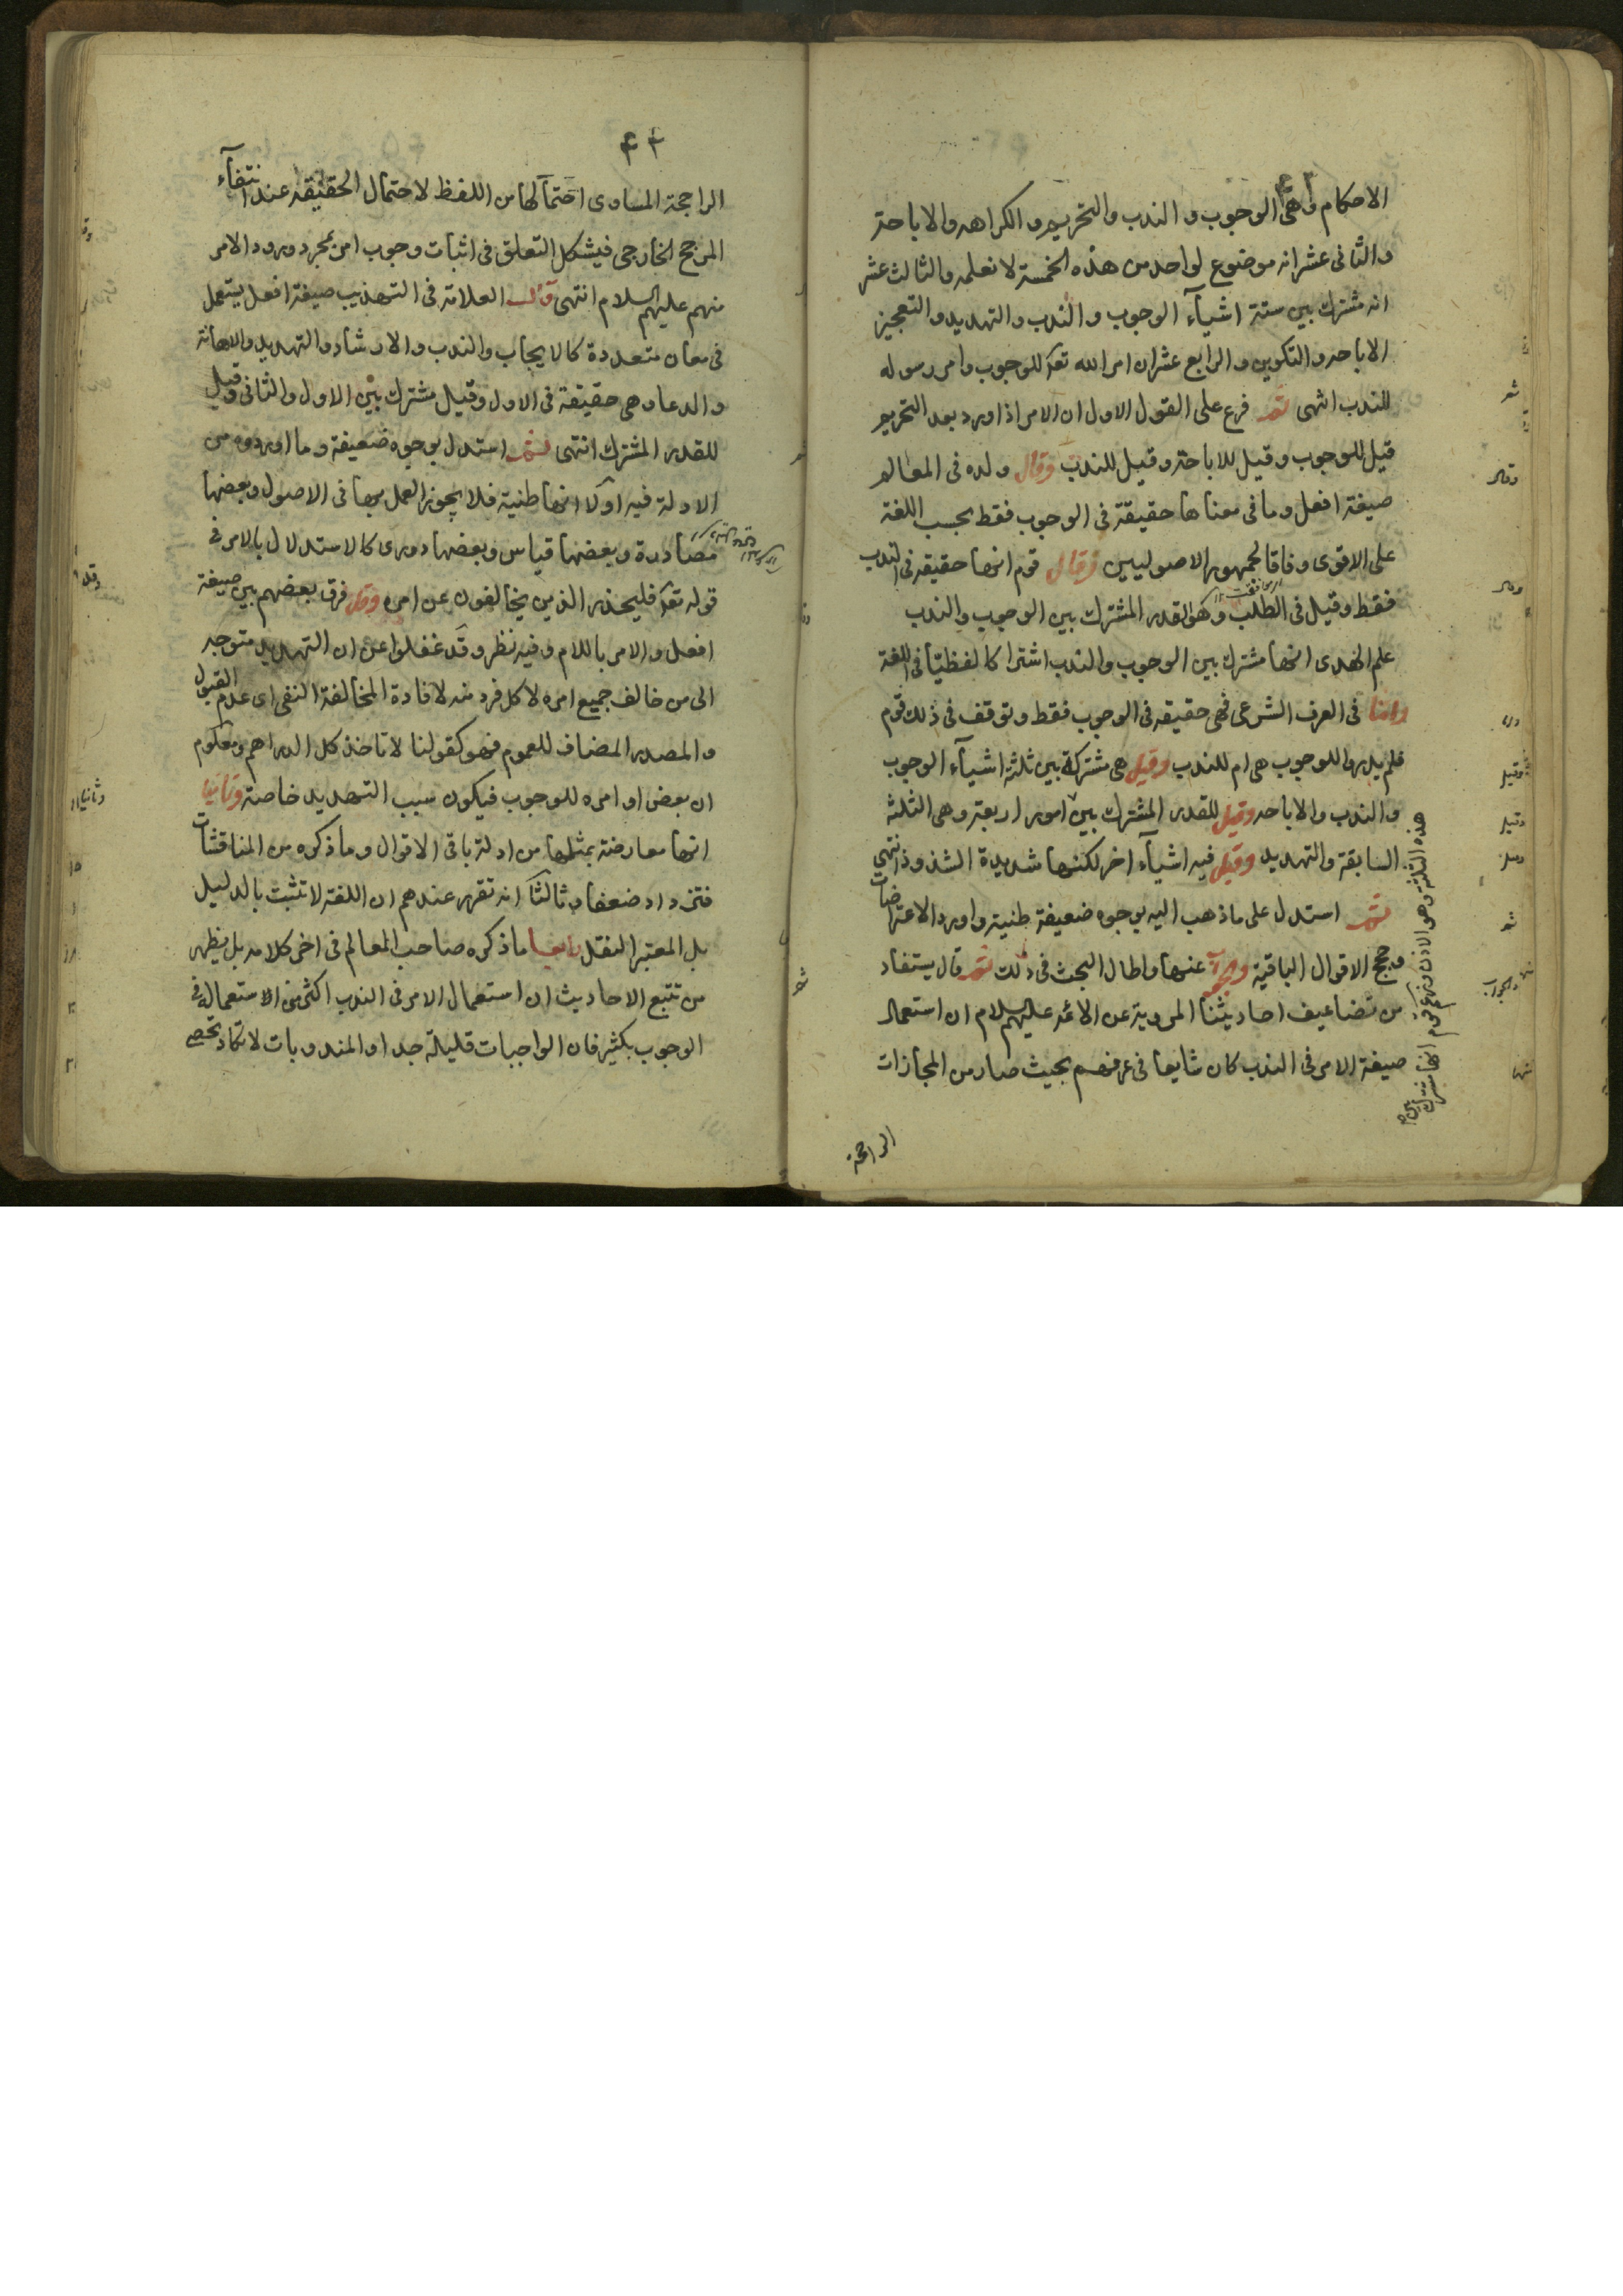 ۴۳
الاحكام وهى الوجوب و الندب والتحريم و الكراهه والاباحة
والثانى عشر انه موضوع لواحد من هذه الخمسة لا نعلمه والثالث عشر
انه مشترك بين ستة اشيآء الوجوب والندب والتهديد والتعجيز
الاباحه والتكوين والرابع عشر ان امر الله تعۤ للوجوب وامر رسوله
للندب انتهى ثم فرع على القول الاول ان الامر اذا ورد بعد التحريم
قيل للوجوب وقيل للاباحة وقيل للندب وقال ولده فى المعالم
صيغة افعل وما فى معناها حقيقة فى الوجوب فقط بحسب اللغة
على الاقوى وفاقا لجمهور الاصوليين وقال قوم انها حقيقه فى الندب
فقط وقيل فى الطلب وهو القدر المشترك بين الوجوب والندب
علم الهدى انها مشترك بين الوجوب والندب اشتراكا لفظيّا فى اللغة
واما فى العرف الشرعى فهى حقيقه فى الوجوب فقط وتوقف فى ذلك قوم
فلم يدروا للوجوب هى ام للندب وقيل هى مشتركة بين ثلثة اشيآء الوجوب
والندب والاباحه وقيل للقدر المشترك بين امور اربعة وهى الثلثه
السابقة والتهديد وقيل فيه اشيآء اخر لكنها شديدة الشذوذ انتهى
ثم استدل على ماذهب اليه بوجوه ضعيفة ظنية واورد الاعتراضات
وحجج الاقوال الباقية والجواب عنها واطال البحث فى ذلك ثم قال يستفاد
من تضاعيف احاديثنا المروية عن الائمه عليهم السلام ان استعمال
صيغة الامر فى الندب كان شايعا فى عرفهم بحيث صار من المجازات
الراجحة
هذه الثلثة وهو الاذن وزعم قوم انها مشترك بين
۴۴
الراجحة المساوى احتمآلها من اللفظ لاحتمال الحقيقه عند انتفآء
المرجح الخارجى فيشكل التعلق فى اثبات وجوب امر بمجرد ورود الامر
منهم عليهم السلام انتهى قال العلامة فى التهذيب صيغة افعل يستعمل
فى معان متعددة كالايجاب والندب والارشاد والتهديد والاهانة
والدعا وهى حقيقة فى الاول وقيل مشترك بين الاول والثانى وقيل
للقدر المشترك انتهى ثم استدل بوجوه ضعيفة وما اوردوه من
الادلة فيه اوّلا انها ظنية فلا يجوز العمل بها فى الاصول وبعضها
مصادرة وبعضها قياس وبعضها دورى كالاستدلال بالامر فى
قوله تعۤ فليحذر الذين يخالفون عن امره وقد فرق بعضهم بين صيغة
افعل والامر باللام وفيه نظر وقد غفلوا عن ان التهديد متوجه
الى من خالف جميع امره لا كل فرد منه لافادة المخالفة النفى اى عدم القبول
والمصدر المضاف للعموم فهو كقولنا لا تاخذ كل الدراهم ومعلوم
ان بعض اوامره للوجوب فيكون سبب التهديد خاصة وثانيا
انها معارضة بمثلها من ادلة باقى الاقوال وما ذكره من المناقشات
فتزداد ضعفا وثالثا انه تقرر عندهم ان اللغة لا تثبت بالدليل
بل المعتبر النقل رابعا ما ذكره صاحب المعالم فى اخر كلامه بل يظهر
من تتبع الاحاديث ان استعمال الامر فى الندب اكثر من الاستعمال فى
الوجوب بكثير فان الواجبات قليلة جدا والمندوبات لا تكاد تحصى